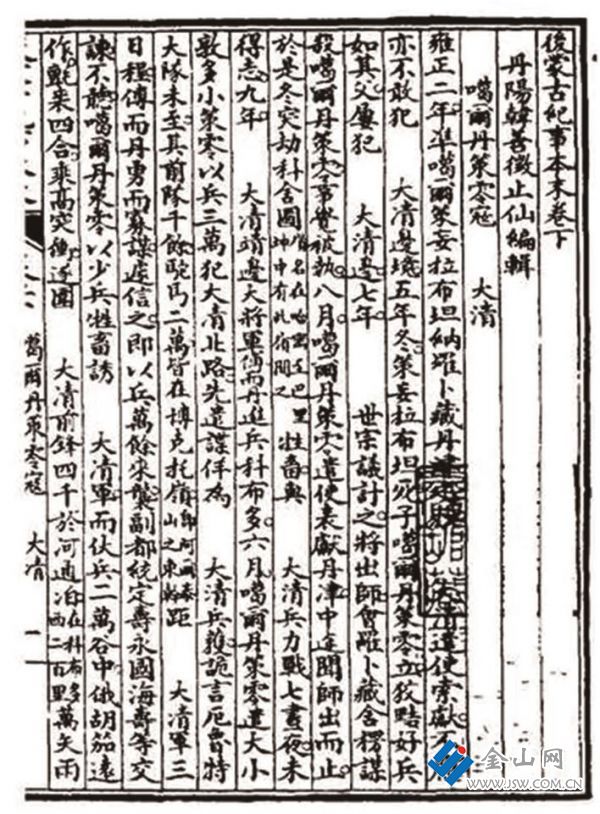 後蒙古紀事本末卷下
丹陽韓善徵止仙編輯
噶爾丹策零寇　大清
雍正二年準噶爾策妄拉布坦納羅卜藏丹津遣使索獻不
亦不敢犯　大清邊境五年冬策妄拉布坦死子噶爾丹策零立狡黠好兵
如其父屢犯　大清邊七年　世宗議討之將出師會羅卜藏舍楞謀
殺噶爾丹策零事覺被執八月噶爾丹策零遣使表獻丹津中途聞師出而止
於是冬突劫科舍圖　牲畜與　大清兵力戰七晝夜未
得志九年　大清靖邊大將軍傅而丹進兵科布多六月噶爾丹策零遣大小
敦多小策零以兵三萬犯大清北路先遣諜佯為　大清兵獲詭言厄魯特
大隊未至其前隊千餘駝馬二萬皆在博克托嶺山之東幹距　大清軍三
日程傅而丹勇而寡謀遽信之即以兵萬餘往襲副都統定壽永國海壽等交
諫不聽噶爾丹策零以少兵牲畜誘　大清軍而伏兵二萬谷中俄胡笳遠
作氈裘四合乘高突衝遂圍　大清前鋒四千於河通泊在科布多西二百里萬矢雨
噶爾丹策零寇　大清
一
金山网
WWW.JSW.COM.CN